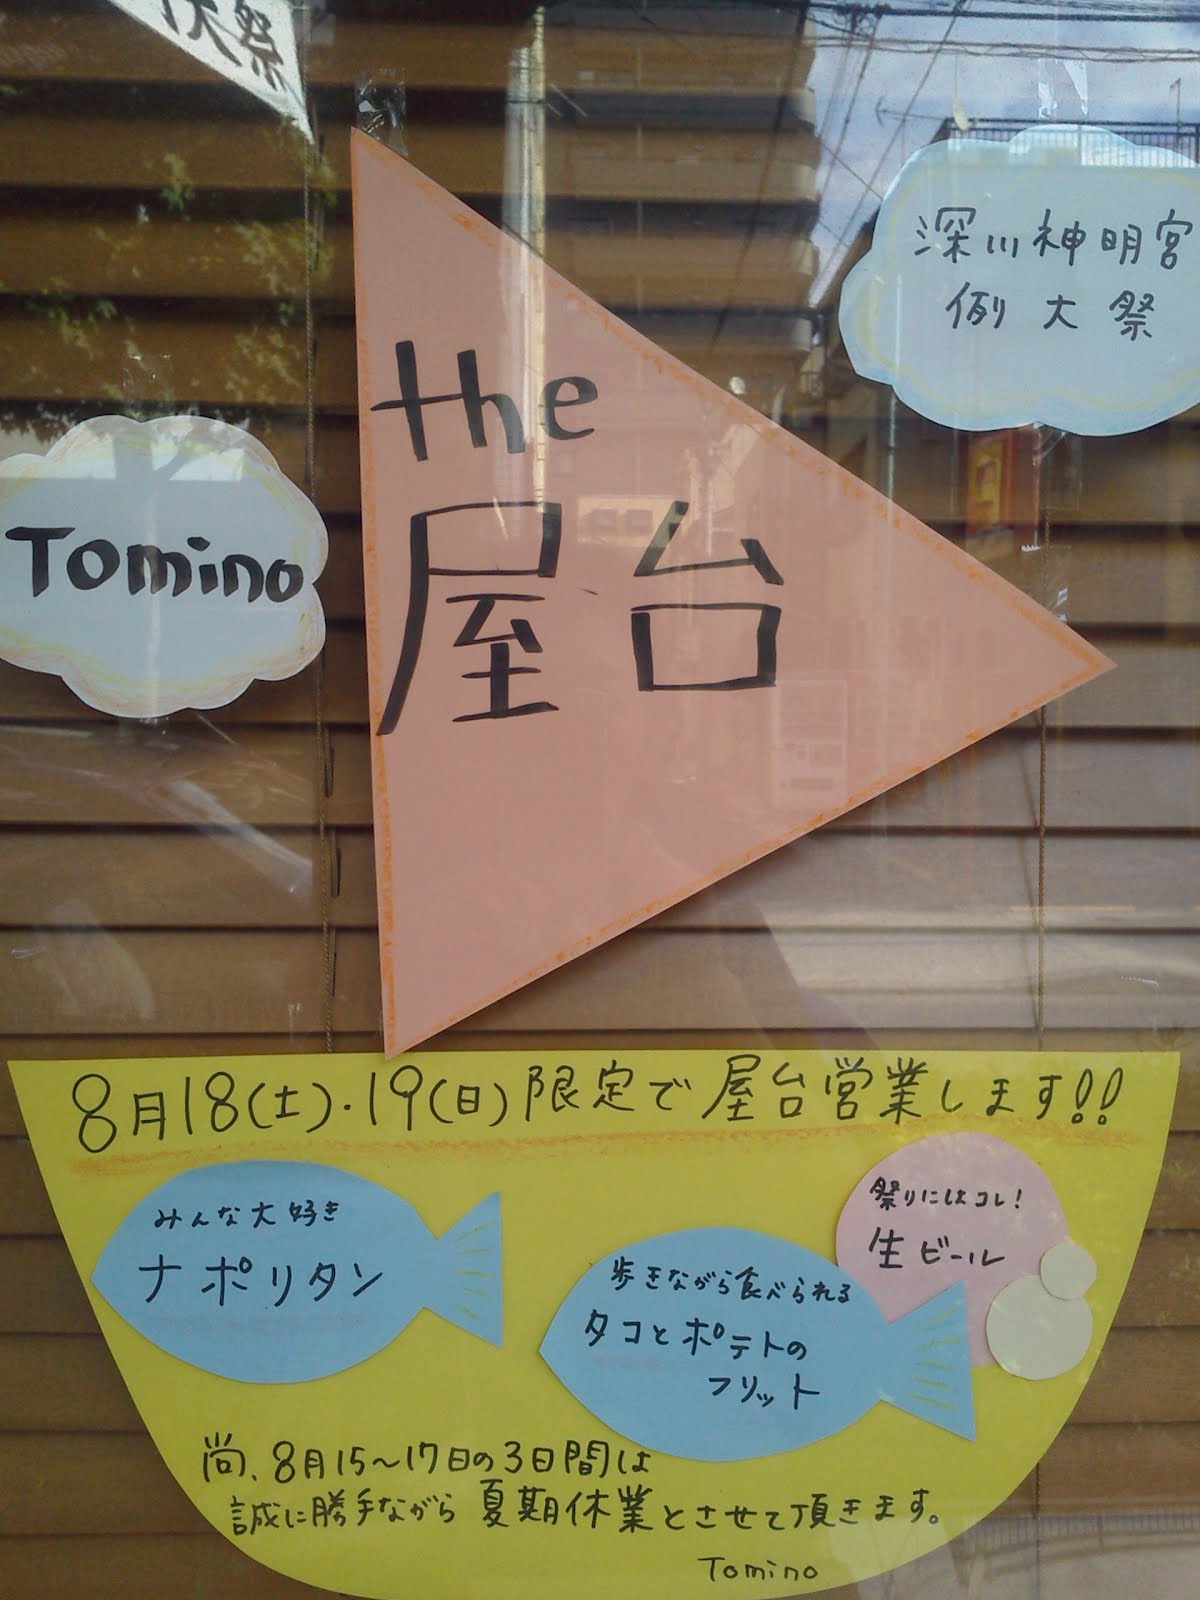 大祭
深川神明宮
例大祭
the
屋台
Tomino
8月18(土)・19(日)限定で屋台営業します!!
みんな大好き
ナポリタン
祭りにはコレ!
生ビール
歩きながら食べられる
タコとポテトの
フリット
尚、8月15~17日の3日間は
誠に勝手ながら夏期休業とさせて頂きます。
Tomino